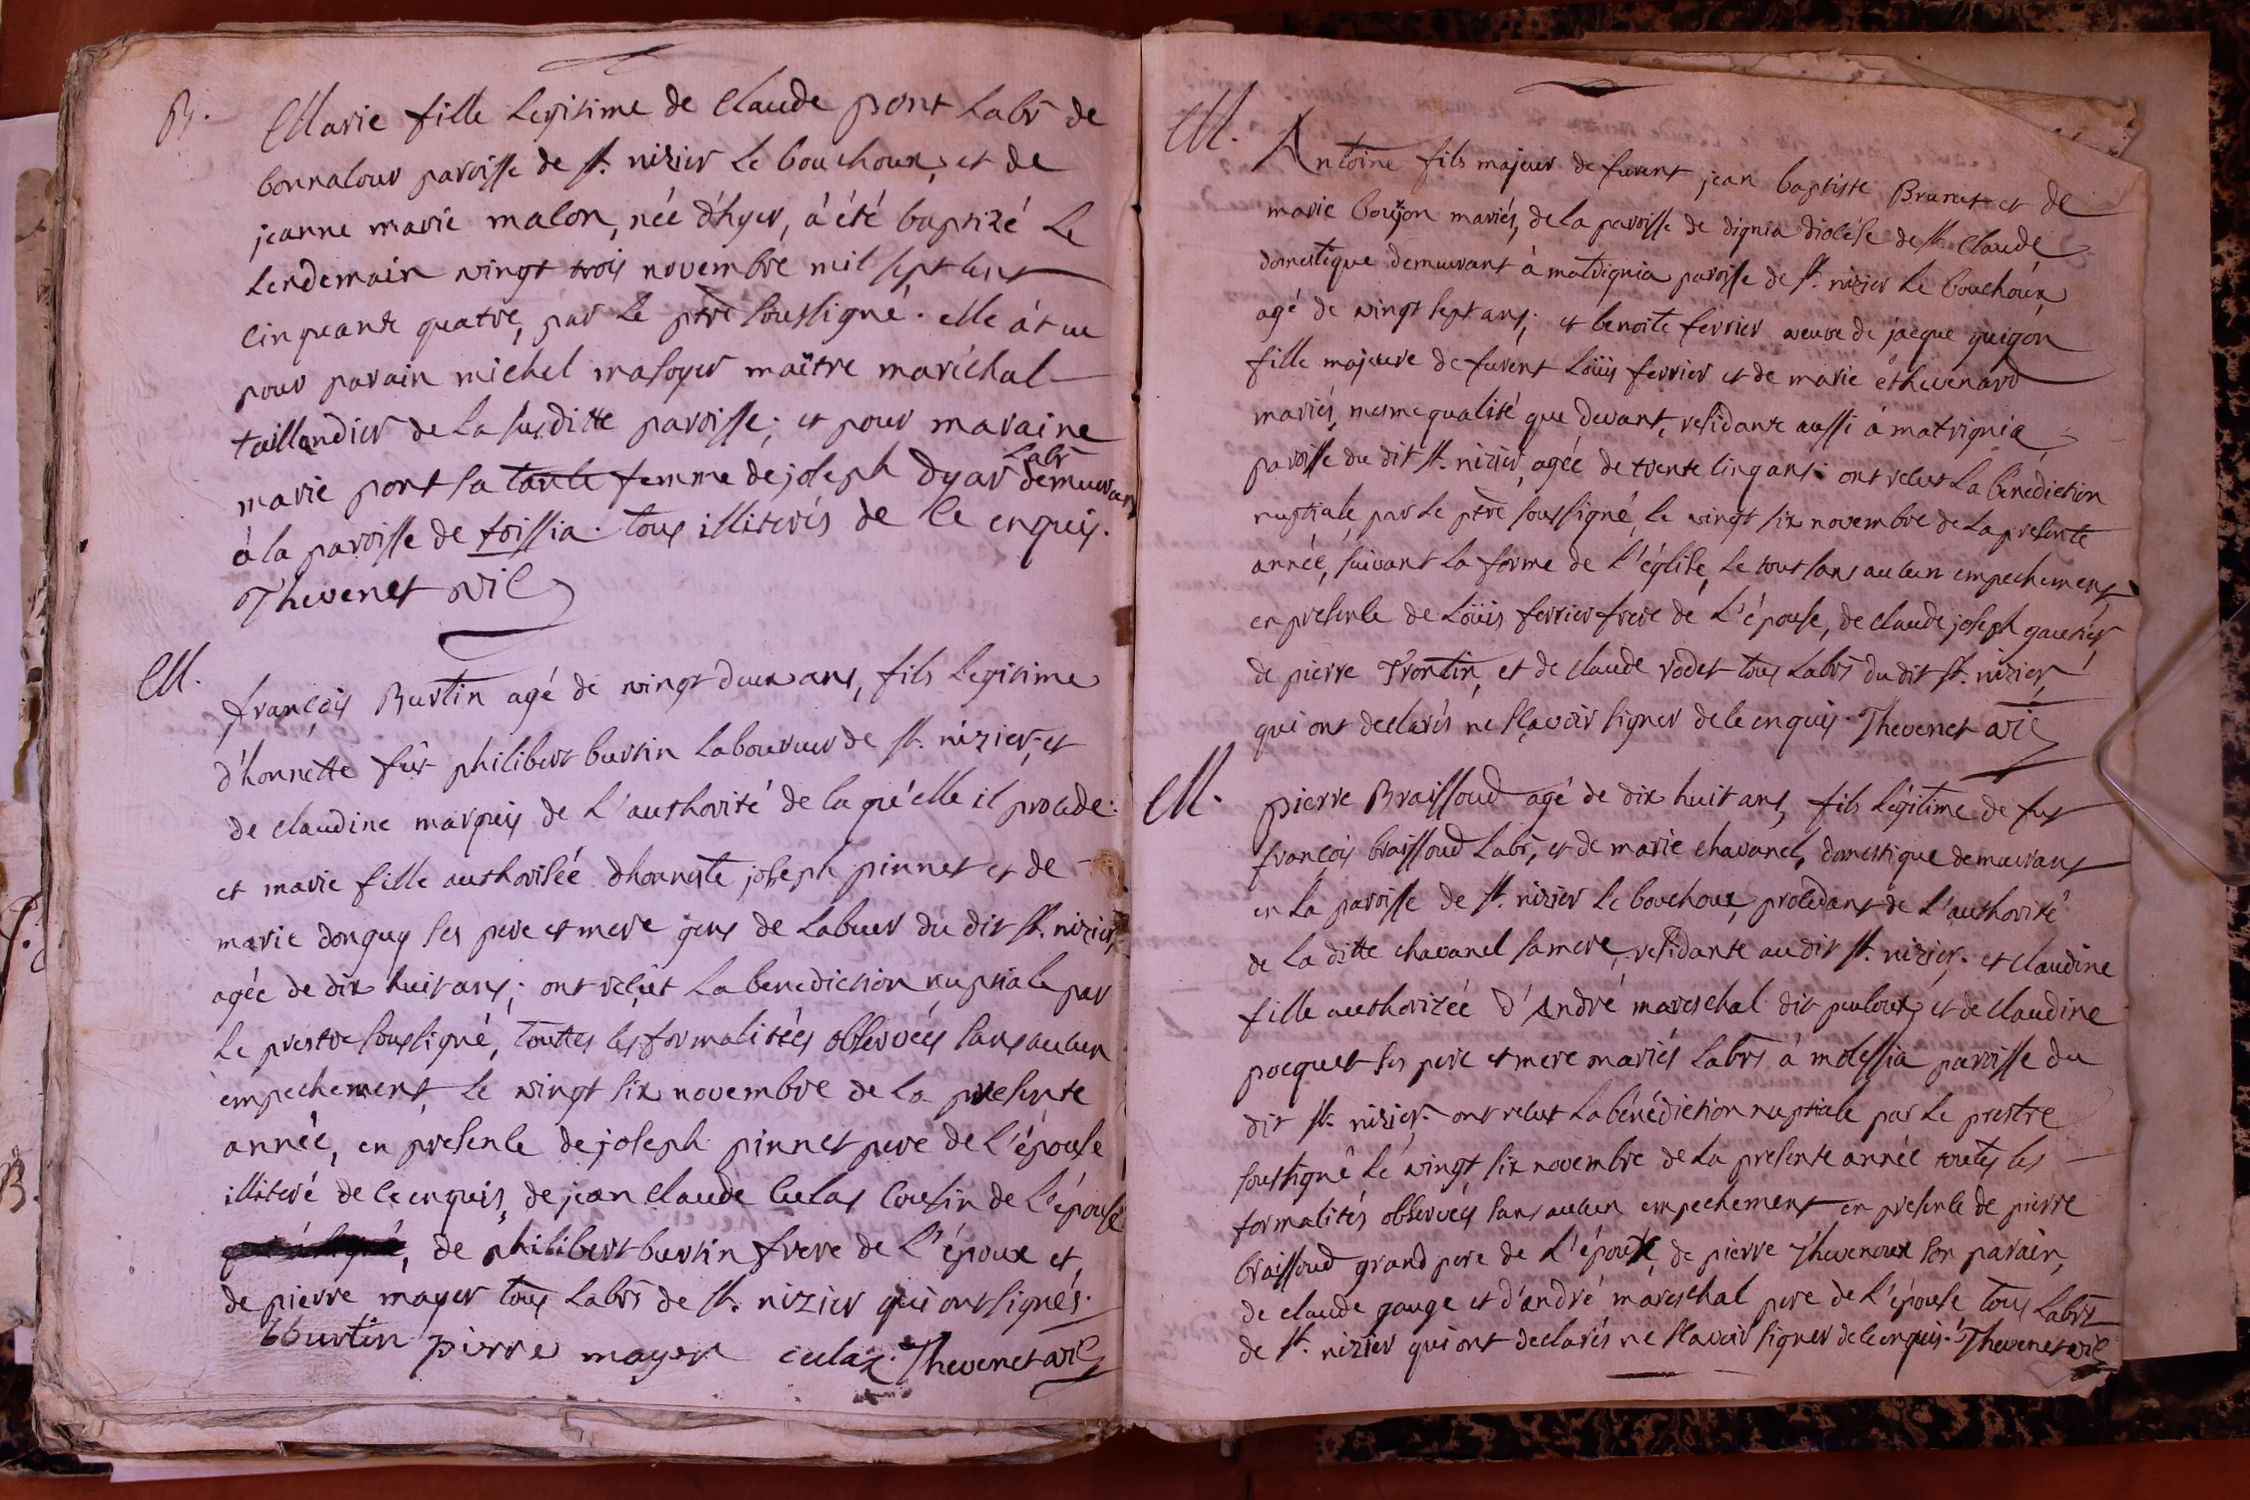 B.
Marie fille legitime de claude pont labr de
bonnalour paroisse de st. nizier le bouchoux, et de
jeanne marie malon, née d'hyer, à été baptizé le
lendemain vingt trois novembre mil sept cent
cinquante quatre, par le ptre soussigné. elle à eu
pour parain michel masoyer maître maréchal
taillandier de la susditte paroisse; et pour maraine
marie pont sa tante femme de joseph Dyar labr demeurant
à la paroisse de foissia. tous illiterés de ce enquis.
Thevenet vic
M.
françois Burtin agé de vingt deux ans, fils legitime
d'honnette fût philibert burtin laboureur de st. nizier, et
de claudine marquis de l'authorité de laquélle il procede:
et marie fille authorisée dhonneste joseph pinnet et de
marie donguy ses pere et mere gens de labeur du dit st. nizier
agée de dix huit ans; ont reçut la benediction nuptiale par
le prestre soussigné, touttes les formalitées observées sans aucun
émpechement, le vingt six novembre de la presente
année, en presence de joseph pinnet pere de l'épouse
illiteré de ce enquis, de jean claude culas cousin de l'épouse
, de philibert burtin frere de l'époux et
de pierre mayer tous labrs de st. nizier qui ont signés.
bburtin pierre mayer culaz. Thevenet vic
M.
Antoine fils majeur de furent jean baptiste Brunet et de
marie boujon mariés, de la paroisse de dignia diocése de st claude
domestique demeurant à matrignia paroisse de st. nizier le bouchoux
agé de vingt sept ans; et benoite ferrier veuve de jacque guigon
fille majeure de furent Loüis ferrier et de marie éthevenard
mariés, mesme qualité que devant, residante aussi à matrignia
paroisse du dit st. nizier, agée de trente cinq ans: ont recut la bénédiction
nuptiale par le ptre soussigné, le vingt six novembre de la presente
année, suivant la forme de l'église, le tout sans aucun empechement,
en presence de Loüis ferrier frere de l'épouse, de claude joseph gautier
de pierre Trontin, et de claude rodet tous labrs du dit st. nizier,
qui ont declarés ne sçavoir signer de ce enquis. Thevenet vic
M.
pierre Braissoud agé de dix huit ans, fils légitime de fut
françois braissoud labr, et de marie chavanel, domestique demeurant
en la paroisse de st. nizier le bouchoux, procedant de l'authorité
de la ditte chavanel sa mere, residante au dit st. nizier. et claudine
fille authorizée d'André mareschal dit pouloux, et de claudine
pocquet ses pere et mere mariés labrs à molessia paroisse du
dit st. nizier. ont recut la bénédiction nuptiale par le prestre
soussigné le vingt six novembre de la presente année toutes les
formalités observées sans aucun empechement en presence de pierre
braissoud grand pere de l'époux, de pierre Thevenoux son parain,
de claude gauge et d'andré mareschal pere de l'épouse tous labrs
de st. nizier qui ont declarés ne sçavoir signer de ce enquis. Thevenet vic